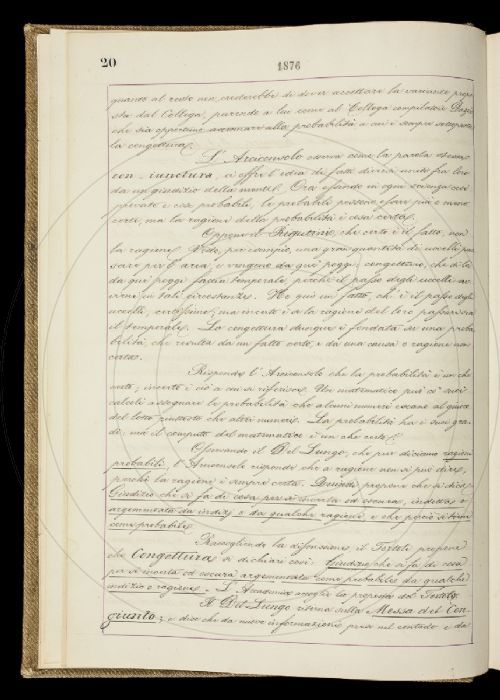 20
1876
quanto al resto non crederebbe di dover accettare la variante propo-
sta dal Collega, parendo a lui come al Collega compilatore
che sia opportuno accennare alla probabilità a cui è sempre
la congettura.
L'Arciconsolo osserva come la parola stessa
con-iunctura, ci offre l'idea di fatti diversi uniti fra loro
da un giudizio della mente. Ora essendo in ogni scienza
privato e cosa probabile, le probabili possono esser più o meno
certe, ma la ragione della probabilità è cosa certa.
Oppone il Rigutini, che certo è il fatto, non
la ragione. Vedo, per esempio, una gran quantità di uccelli pas-
sare per l'aria, e vengono da que' poggi: congetturo, che di là
da que' poggi faccia temporale, perchè il passo degli uccelli av-
viene in tali circostanze. Ho qui un fatto, ch'è il passo degli
uccelli, certissimo, ma incerta è a la ragione del loro passare
il temporale. La congettura dunque è fondata su una proba-
bilità, che resulta da un fatto certo, e da una causa o ragione non
certa.
Risponde l'Arciconsolo che la probabilità è un che
certo; incerto è ciò a cui si riferisce. Un matematico può co' suoi
calcoli assegnare la probabilità che alcuni numeri escano al giuoco
del lotto piuttosto che altri numeri. La probabilità ha i suoi gra-
di, ma il computo del matematico è un che certo.
Osservando il Del Lungo, che pur diciamo ragioni
probabili, l'Arciconsolo risponde che a ragione non si può dire,
perchè la ragione è sempre certa. propone che si dica
Giudizio che si fa di cosa per sè incerta od oscura,
argomentata da indizj o da qualche ragione, e che perciò si tiene
come probabile.
Raccogliendo la discussione il Tortoli propone
che Congettura si dichiari così: Giudizio che si fa di cosa
per sè incerta od oscura argomentata come probabile da qualche
indizio o ragione. L'Accademia accoglie la proposta del Tortoli.
Il Del Lungo ritorna sulla Messa del Con-
giunto; e dice che da nuove informazioni prese nel contado e da